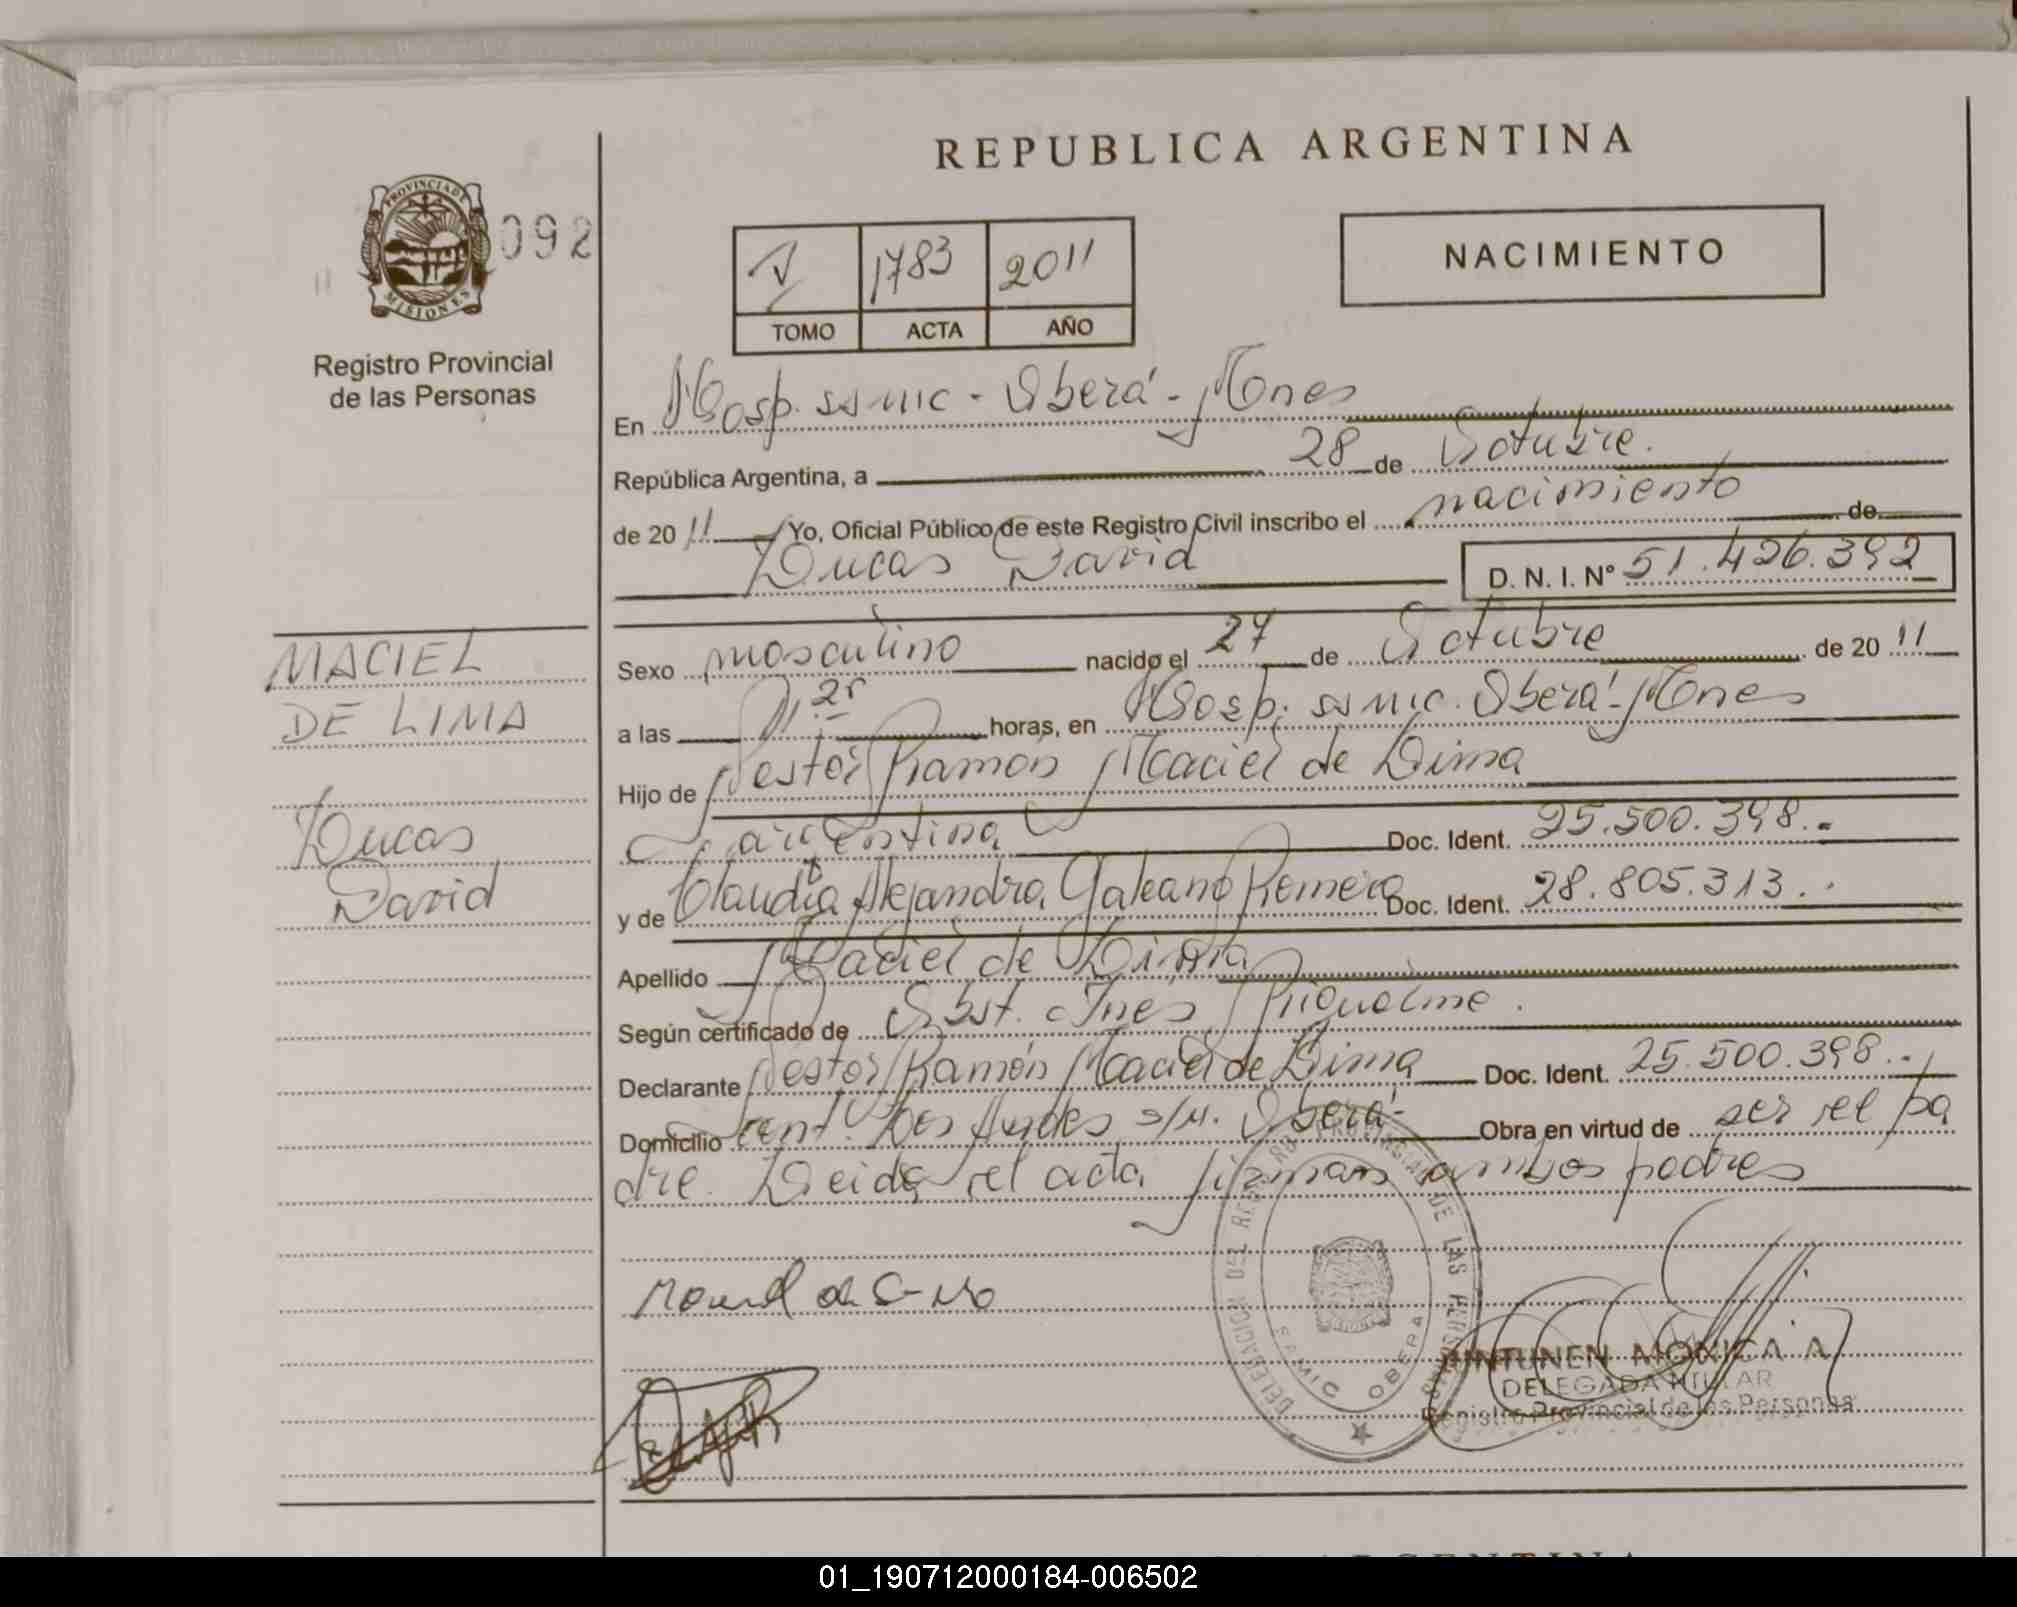 REPUBLICA ARGENTINA
PROVINCIA DE
MISIONES
092
Registro Provincial
de las Personas
1783 2011
TOMO ACTA AÑO
NACIMIENTO
En Hosp. ssmic - Oberá - Mnes
República Argentina, a 28 de Octubre.
de 20 11 Yo, Oficial Público de este Registro Civil inscribo el nacimiento de
Lucas David
D. N. I. Nº 51.426.392
MACIEL
DE LIMA
Lucas
David
Sexo masculino nacido el 27 de Octubre de 20 11
a las 11.25 horas, en Hosp. ssmic. Oberá - Mnes
Hijo de Nestor Ramón Maciel de Lima
argentina Doc. Ident. 25.500.398.-
y de Claudia Alejandra Galeano Romero Doc. Ident. 28.805.313.-
Apellido Maciel de Lima
Según certificado de Obst. Ines Riquelme.
Declarante Nestor Ramón Maciel de Lima Doc. Ident. 25.500.398.-
Domicilio Los Andes s/n. Oberá- Obra en virtud de ser el pa
dre. Leida el acta firman ambos padres
DELEGACION DEL REGISTRO PROVINCIAL DE LAS PERSONAS
SAMIC OBERA
MONICA A
DELEGADA
Registro Provincial de las Personas
01_190712000184-006502